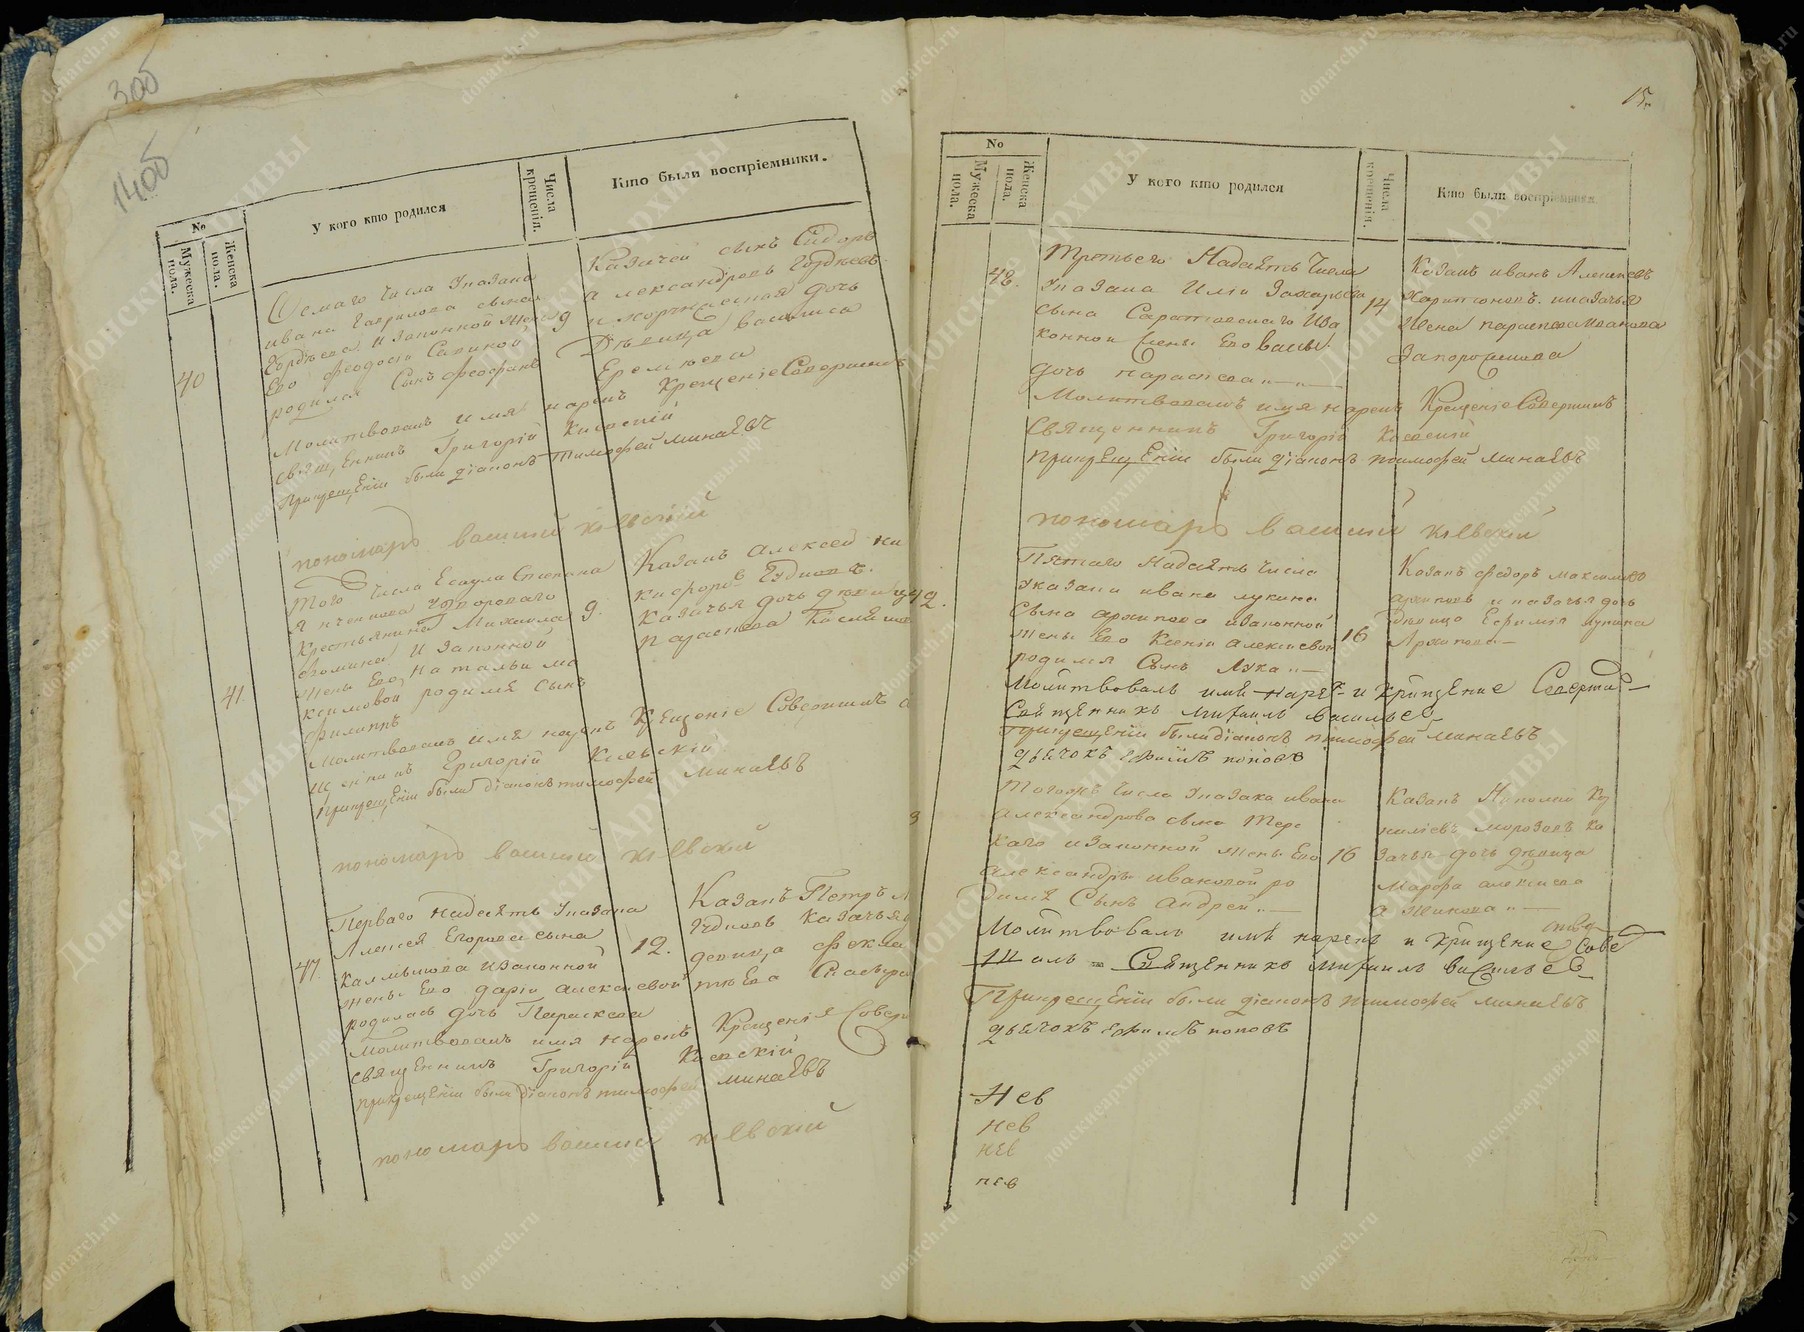 30об
14об
№
Мужеска пола.
Женска пола.
У кого кто родился
Числа крещенія.
Кто были воспріемники.
40
Осмаго Числа Указака
ивана Гаврилова сына
Гордѣева И Законной жены
Его Феодосіи Савиной
родился Сынъ Феофанъ
9
Казачей сынъ Сидоръ
Александровъ Гордѣевъ
дочь
Дѣвица василиса
Еремѣева
Молитвовалъ имя нарекъ Крещеніе Совершилъ
священникъ Григорій Кіевскій
Прикрещеніи были діаконъ тимофей минаевъ
пономарь василий кіевскій
41.
Того Числа Есаула Степана
Крестьянина Михаила
Фомина И Законной
жены Его Натальи Ма
ксимовой родился Сынъ
филипъ
9.
Казакъ Алексей Ни
кифоровъ
Казачья дочь дѣвица
параскева
Молитвовалъ имя нарекъ Крещеніе Совершилъ с
щенникъ Григорій Кіевскій
Прикрещеніи были діаконъ тимофей минаевъ
пономарь василий кіевскій
47.
Перваго Надесять Указака
Алексея Егорова сына
Калмыкова иЗаконной
жены Его даріи алексѣевой
родилась дочь Параскева
12.
Казакъ Петръ
Казачья
девица фекла
Молитвовалъ имя нарекъ Крещеніе Совер
священникъ Григорій Кіевскій
прикрещеніи были діаконъ тимофей минаевъ
пономарь василий кіевскій
15.
№
Мужеска пола.
Женска пола.
У кого кто родился
Числа крещенія.
Кто были воспріемники.
48.
Третьего Надесять Числа
Указака Ильи Захарьева
сына Саратовскаго иЗа
конной жены Его
дочь параскева
14
Казакъ иванъ Алексѣевъ
Харитоновъ иказачья
жена параскева Иванова
Запорожцова
Молитвовалъ имя нарекъ Крещеніе Совершилъ
Священникъ Григорій Кіевскій
прикрещеніи были діаконъ тимофей минаевъ
пономарь василий кіевскій
42.
Пятаго Надесять Числа
Указака ивана лукина
Сына архипова изаконной
жены Его Ксеніи алексѣевой
родился Сынъ Лука
16
Казакъ федоръ максимовъ
архиповъ и казачья дочь
дѣвица Ефимія лукина
Архипова
Молитвовалъ имя нареч и Крещение Соверши
Священникъ Михаилъ васильев
Прикрещеніи были діаконъ тимофей минаевъ
дьячокъ Ефимъ поповъ
Тогожъ Числа Указака ивана
александрова сына Тер
каго изаконной жены Его
александры ивановой ро
дился Сынъ андрей
16
Казакъ
морозовъ Ка
зачья дочь дѣвица
Марфа алексѣева
Молитвовалъ имя нарекъ и Крещение Сове
шалъ Священникъ Михаилъ васильев
Прикрещеніи были діаконъ тимофей минаевъ
дьячокъ Ефимъ поповъ
Нев
нев
нев
нев
Донские Архивы
donarch.ru
донскиеархивы.рф